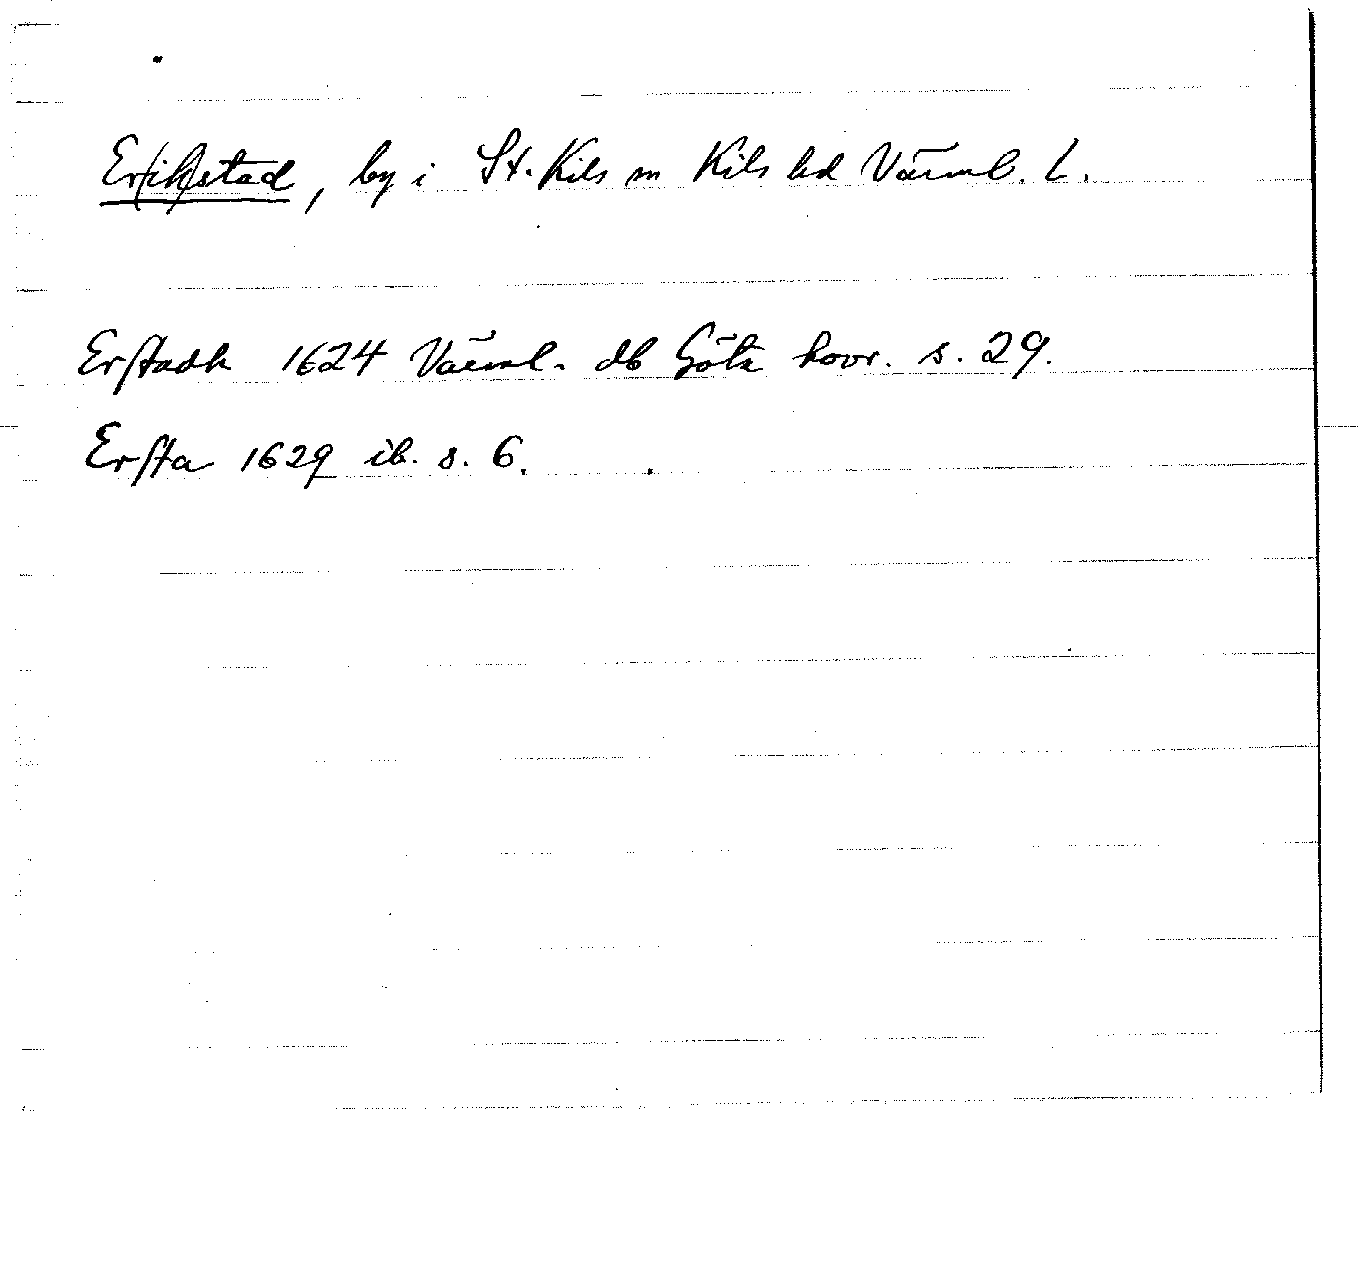 Erikstad, by i St. Kils sn Kils hd Värml. L.
Erstadh 1624 Värml. db Göta hovr. s. 29.
Ersta 1629 ib. s. 6.